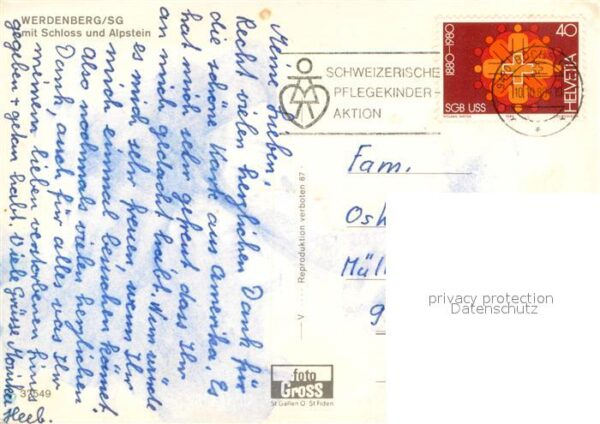 WERDENBERG/SG
mit Schloss und Alpstein
Meine Lieben,
Recht vielen herzlichen Dank für
die schöne Karte aus Amerika. Es
hat mich sehr gefreut, dass Ihr
an mich gedacht habt. Nun würde
es mich sehr freuen, wenn Ihr
mich einmal besuchen kommt.
Also nochmals vielen herzlichen
Dank, auch für alles was Ihr
meinem lieben verstorbenen
gegeben + geben habt. Viele Grüsse Monika
Heeb.
37549
V Reproduktion verboten 87
foto
Gross
St Gallen O St Fiden
SCHWEIZERISCHE
PFLEGEKINDER-
AKTION
1880-1980
40
SGB USS
HELVETIA
Fam.
Osh
Müll
9
privacy protection
Datenschutz